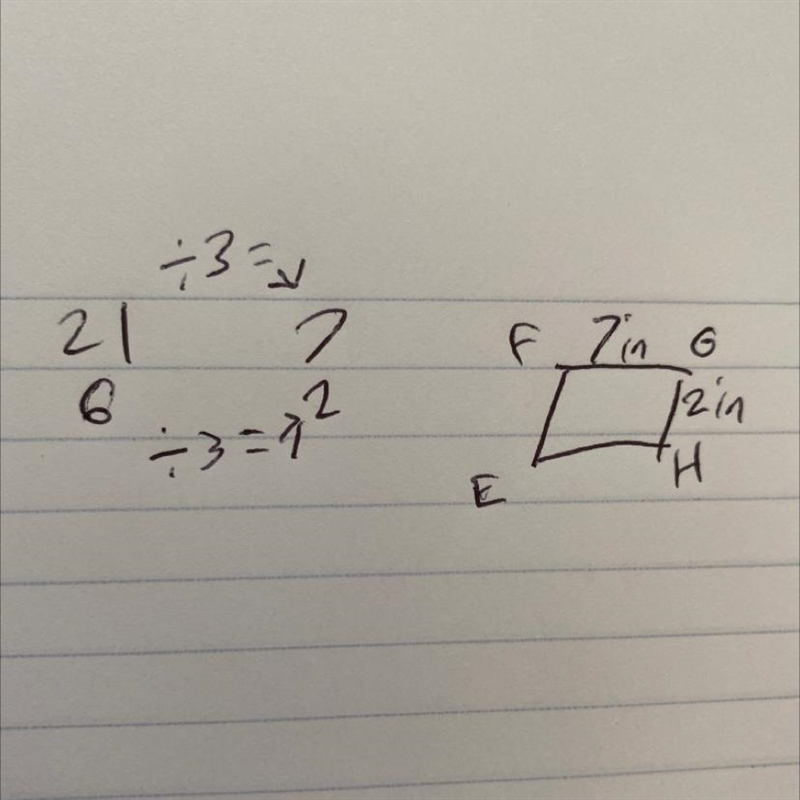 ÷3=↘
21 7
6 2
÷3=↗
F 7in G
2in
E H